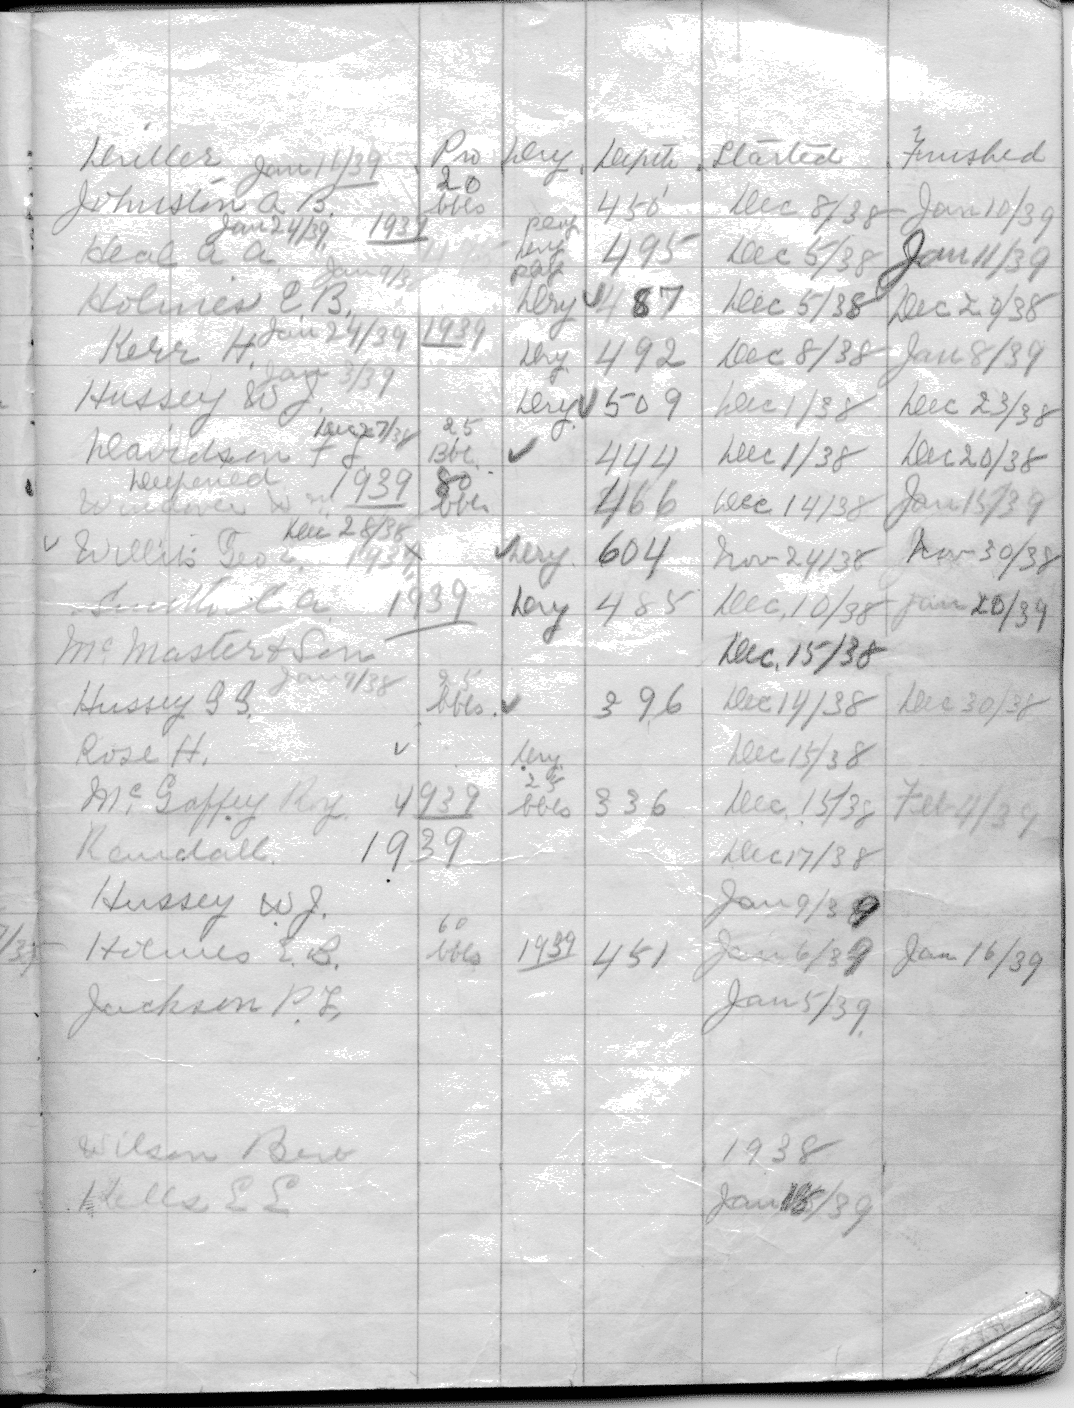 Driller Pro Dry Depth Started Finished
Jan 11/39 20
Johnston A B. bbls 450 Dec 8/38 Jan 10/39
Jan 24/39 1939
Heal A A Dry 495 Dec 5/38 Jan 11/39
Jan 9/39
Holmes E B. Dry ✓ 487 Dec 5/38 Dec 29/38
Jan 24/39 1939
Kerr H. Dry 492 Dec 8/38 Jan 8/39
Jan 3/39
Hussey W J. Dry ✓ 509 Dec 1/38 Dec 23/38
Dec 27/38 25
Davidson F J Bbl. ✓ 444 Dec 1/38 Dec 20/38
Deepened 1939 80
bbls 466 Dec 14/38 Jan 15/39
Dec 28/38
✓ Willis Geo. ✓ Dry. 604 Nov 24/38 Nov 30/38
C A. 1939 Dry 485 Dec. 10/38 Jan 20/39
McMaster & Son Dec. 15/38
Jan 9/38 25
Hussey G G. bbls. ✓ 396 Dec 14/38 Dec 30/38
Rose H. ✓ Dry. Dec 15/38
25
McGaffey Roy. 1939 bbls 336 Dec. 15/38 Feb 4/39
Kendall. 1939 Dec 17/38
Hussey W J. Jan 9/39
60
Holmes E. B. bbls 1939 451 Jan 6/39 Jan 16/39
Jackson P. L, Jan 5/39.
Wilson Bero 1938
Hells E E Jan /39